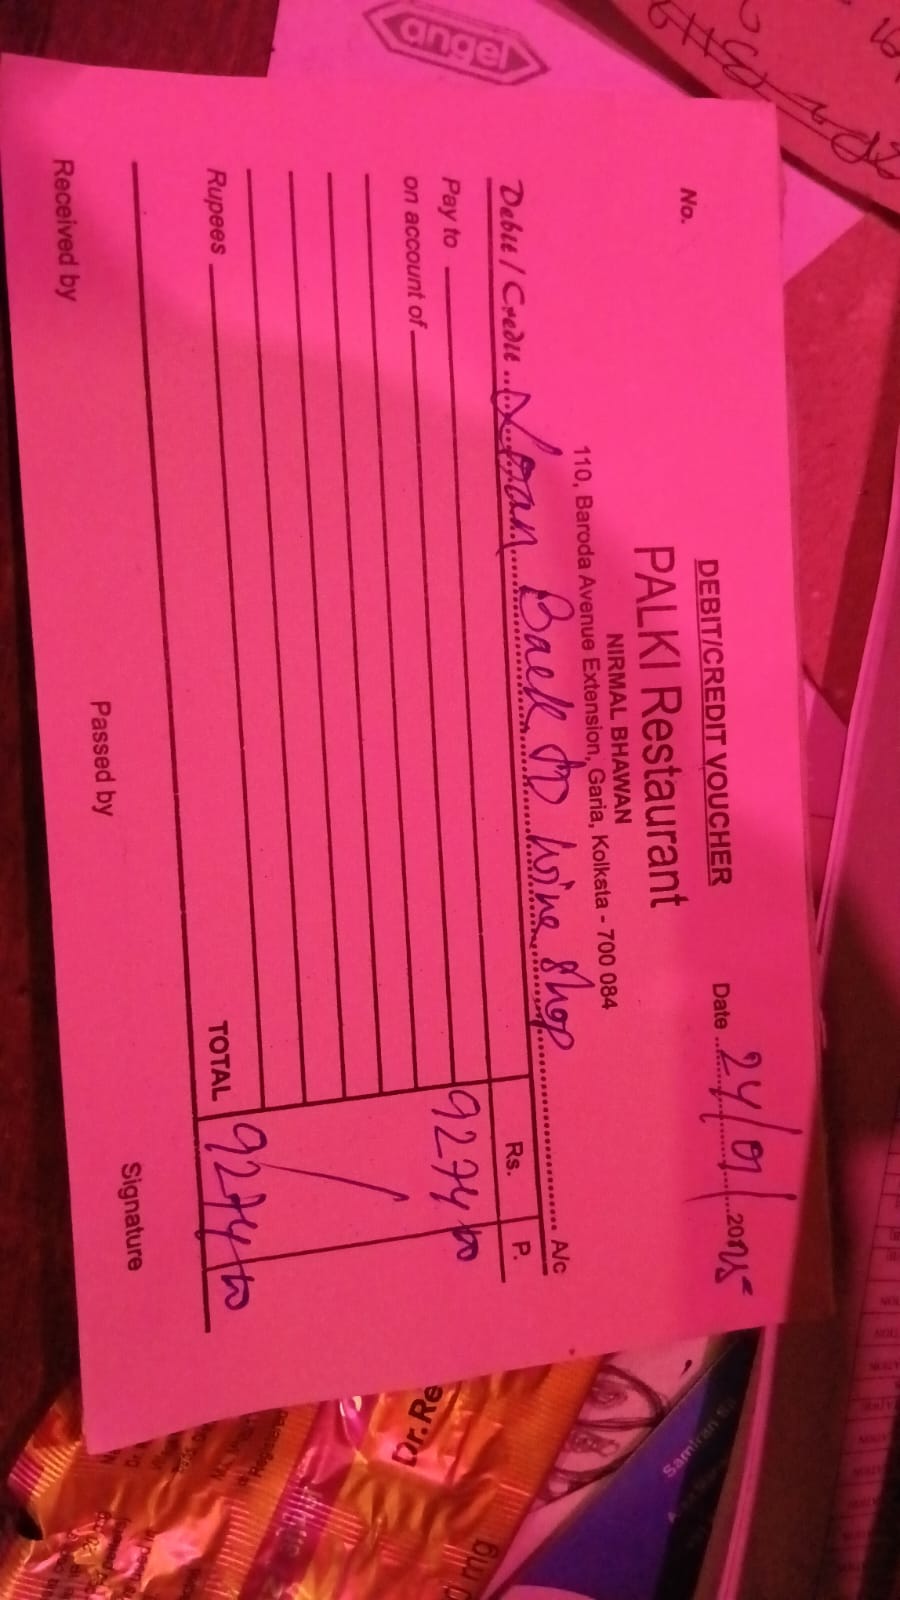 angel
DEBIT/CREDIT VOUCHER
No.
Date 24/01/2025
PALKI Restaurant
NIRMAL BHAWAN
110, Baroda Avenue Extension, Garia, Kolkata - 700 084
Debit / Credit Loan Back to wine shop A/c
Rs. P.
Pay to 9274 00
on account of
Rupees
TOTAL 9274 00
Received by
Passed by
Signature
Dr.Re
Samiran
mg